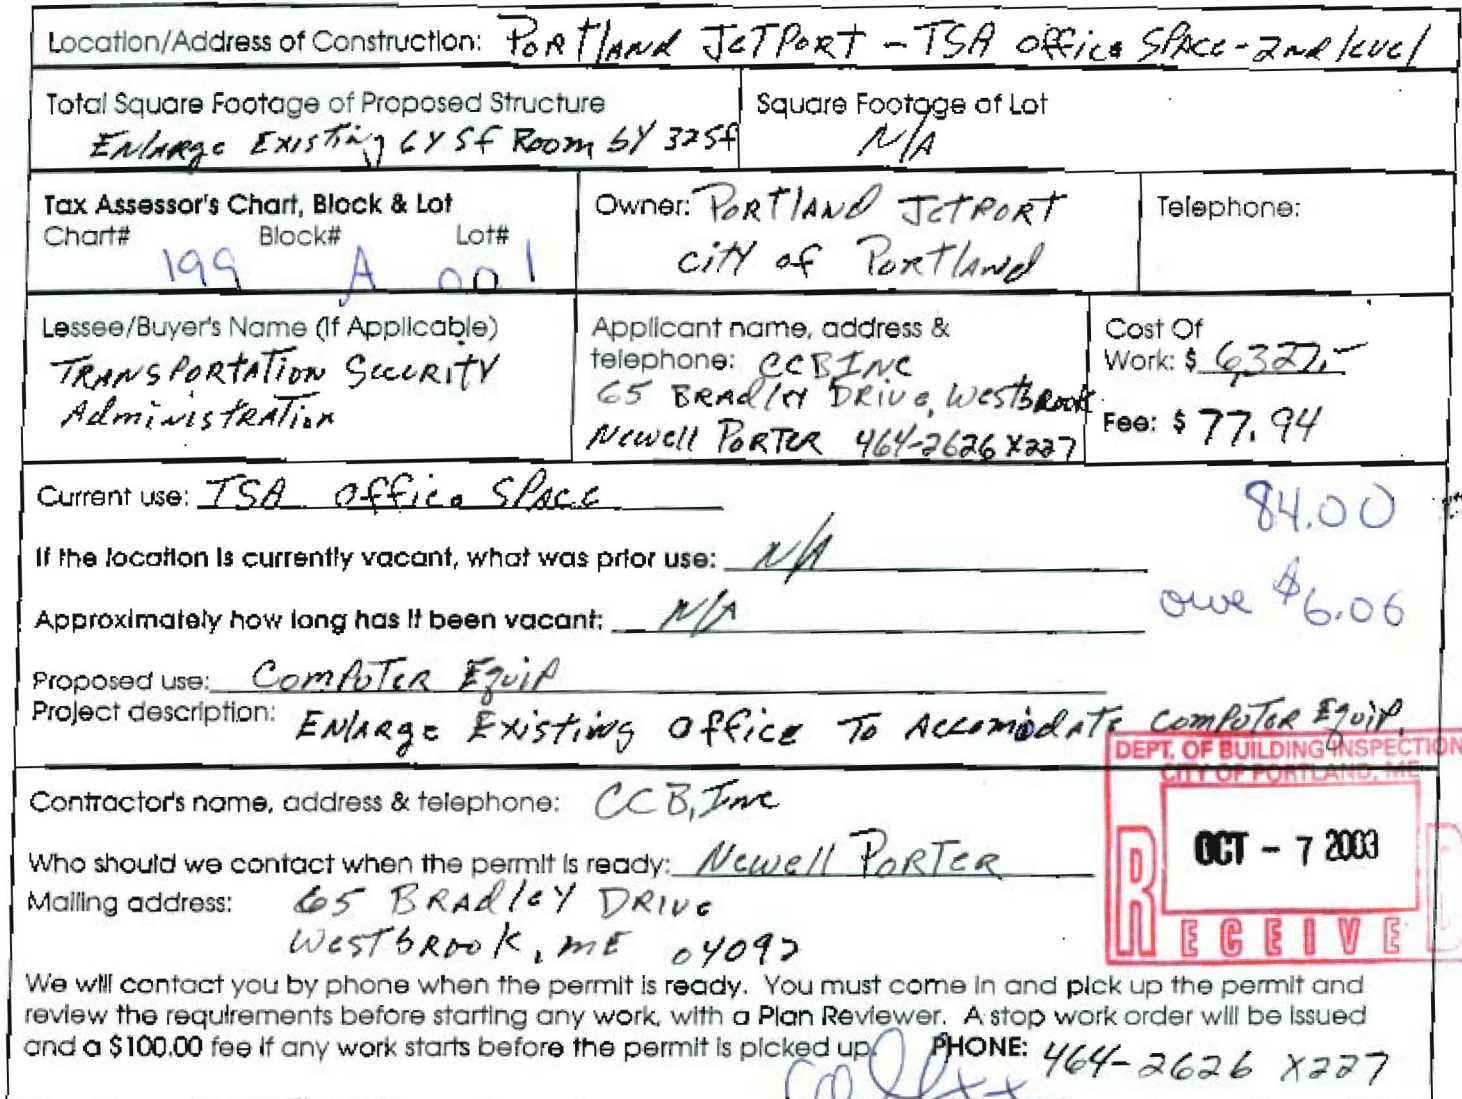 Location/Address of Construction: PORTLAND JETPORT - TSA office SPACE - 2nd level
Total Square Footage of Proposed Structure
ENlARge Existing 64 Sf Room by 32 sf
Square Footage of Lot
N/A
Tax Assessor's Chart, Block & Lot
Chart# Block# Lot#
199 A 001
Owner: PORTLAND JETPORT
city of Portland
Telephone:
Lessee/Buyer's Name (If Applicable)
TRANSPORTATION SECURITY
Administration
Applicant name, address &
telephone: CCB INC
65 BRADley DRIVe, Westbrook
Newell PORTER 464-2626 X227
Cost Of
Work: $ 6,327.-
Fee: $ 77.94
Current use: TSA office SPACE
84.00
If the location is currently vacant, what was prior use: N/A
owe $6.06
Approximately how long has it been vacant: N/A
Proposed use: COMPUTER EQUIP
Project description: ENlARge Existing office To Accomodate COMPUTER EQUIP.
DEPT. OF BUILDING INSPECTION
CITY OF PORTLAND, ME
OCT - 7 2003
RECEIVED
Contractor's name, address & telephone: CCB, Inc
Who should we contact when the permit is ready: Newell PORTER
Mailing address: 65 BRADley DRIVe
Westbrook, ME 04092
We will contact you by phone when the permit is ready. You must come in and pick up the permit and
review the requirements before starting any work, with a Plan Reviewer. A stop work order will be issued
and a $100.00 fee if any work starts before the permit is picked up. PHONE: 464-2626 X227